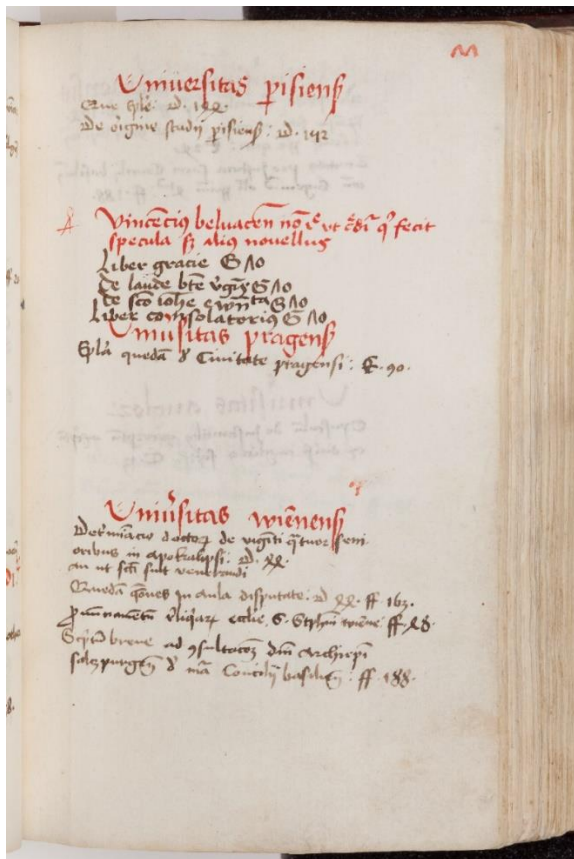 Vniuersitas pisiensꝭ
De origine studii pisiensꝭ: D. 192
Vincēciꝰ beluaceñ nō ē vt cr̄dit̄ qͥ fecit
specula sꝫ aliꝰ nouellus
Liber gracie G 10
De laude bt̄e v̓gīs G 10
De sc̄o ioh̄e ewn̄ta G 10
Liber consolatoriꝰ G 10
Vniūsitas pragensꝭ
Ep̄la quedā d̓ Ciuitate pragensi: E. 90.
Vniūsitas wiēnensꝭ
Det̓miacio doctoꝝ de viginti q̄tuor seni
oribus in apokalipsi: D. xx.
an ut sc̄i sint venerandi
Quedā q̄ōnes in aula disputate: D xx. ff 163.
eccl̄ie S. Steph̄ni wiēne ff. 28.
Sc̓ptū breue ad ꝯsultacōꝫ dn̄i Archiep̄i
salczpurgeñ d̓ mā Concilii basilieñ: ff. 188.